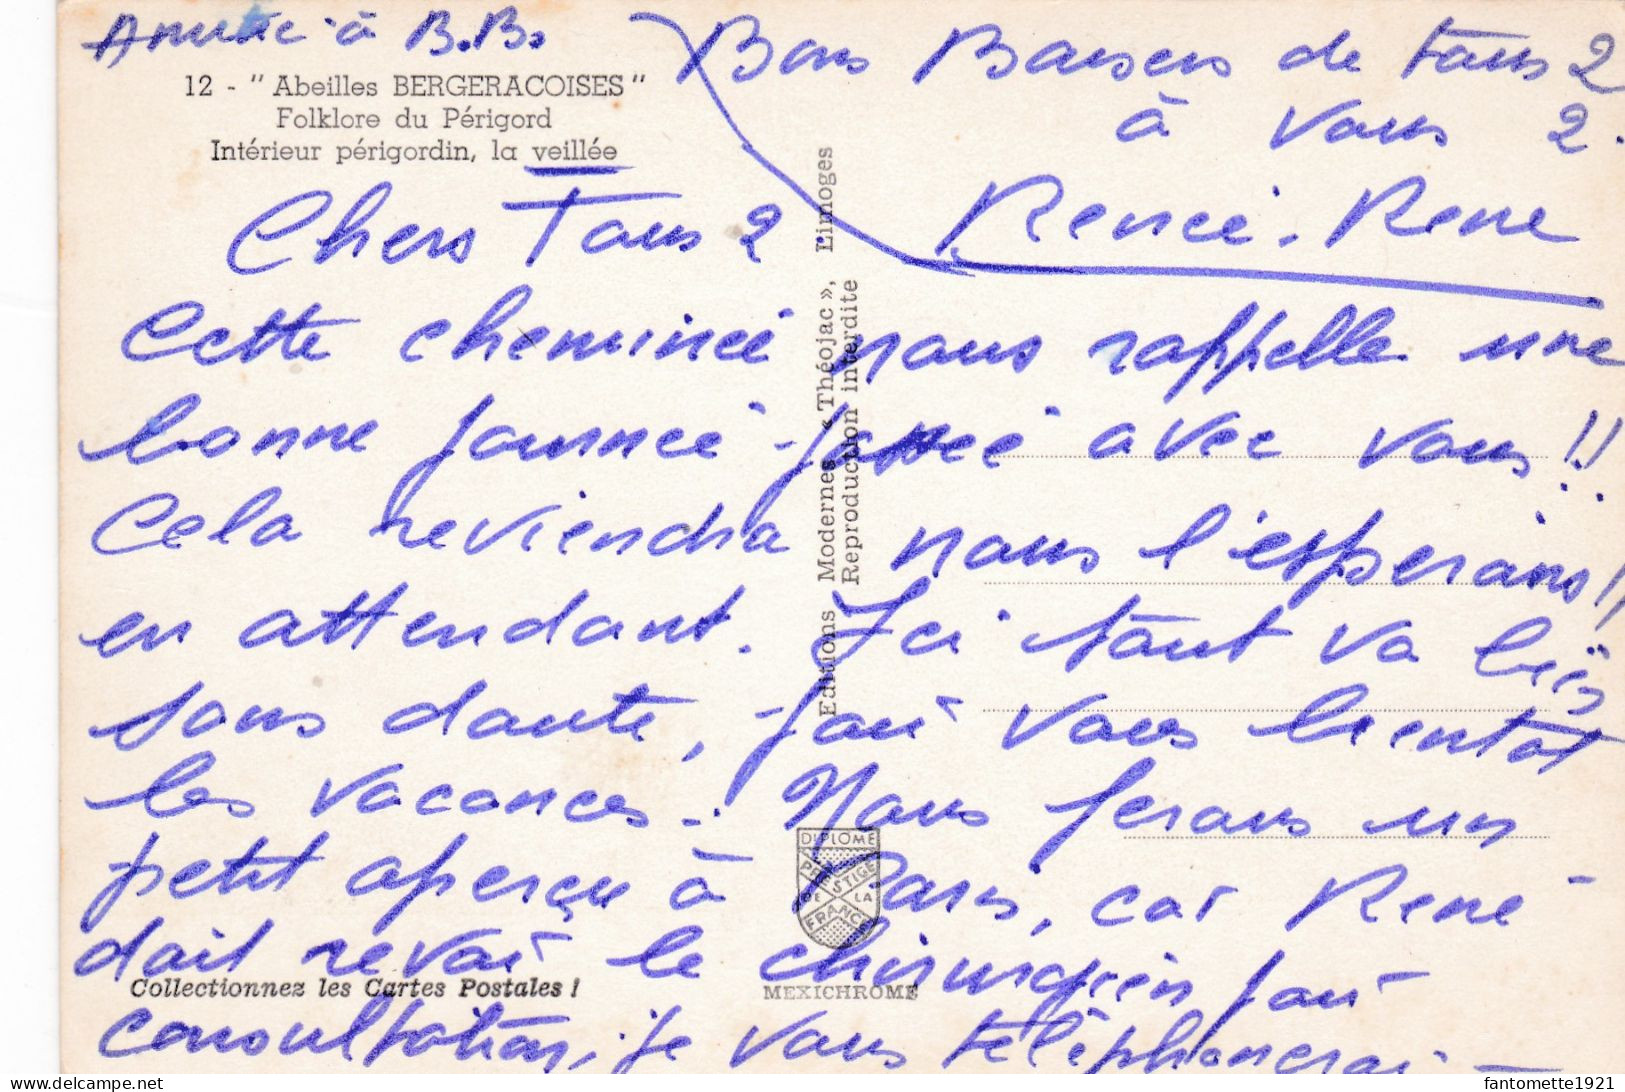 Amitié à B.B.
12 - " Abeilles BERGERACOISES "
Folklore du Périgord
Intérieur périgordin, la veillée
Bons Baisers de tous 2
à vous 2.
Renée. René
Chers Tous 2
Cette cheminée nous rappelle une
bonne journée passée avec vous !!
Cela reviendra nous l'espérons !!
en attendant. Ici tout va bien
sans doute, pour vous bientôt
les vacances. Nous ferons un
petit aperçu à Paris, car René
doit revoir le chirurgien pour
consultation, je vous téléphonerai -
Editions Modernes « Théojac », Limoges
Reproduction interdite
DIPLOME
PRESTIGE
DE LA
FRANCE
Collectionnez les Cartes Postales !
MEXICHROME
fantomette1921